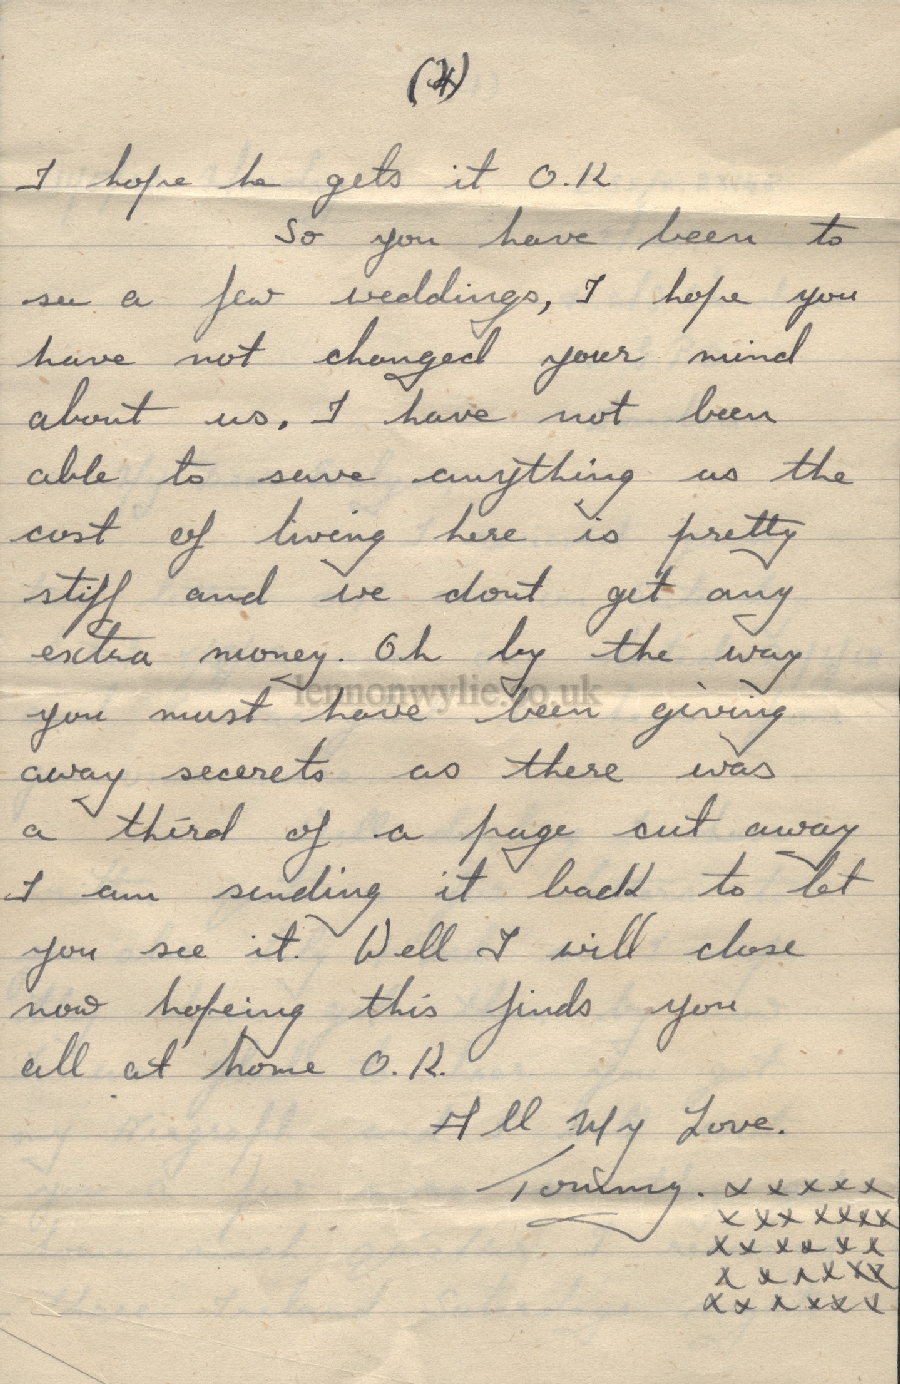 (4)
I hope he gets it O.K
So you have been to
see a few weddings, I hope you
have not changed your mind
about us. I have not been
able to save anything as the
cost of living here is pretty
stiff and we dont get any
extra money. Oh by the way
lennonwylie.co.uk
you must have been giving
away secerets as there was
a third of a page cut away
I am sending it back to let
you see it. Well I will close
now hopeing this finds you
all at home O.K.
All My Love.
Tommy. x x x x x
x x x x x x x
x x x x x x
x x x x x x
x x x x x x